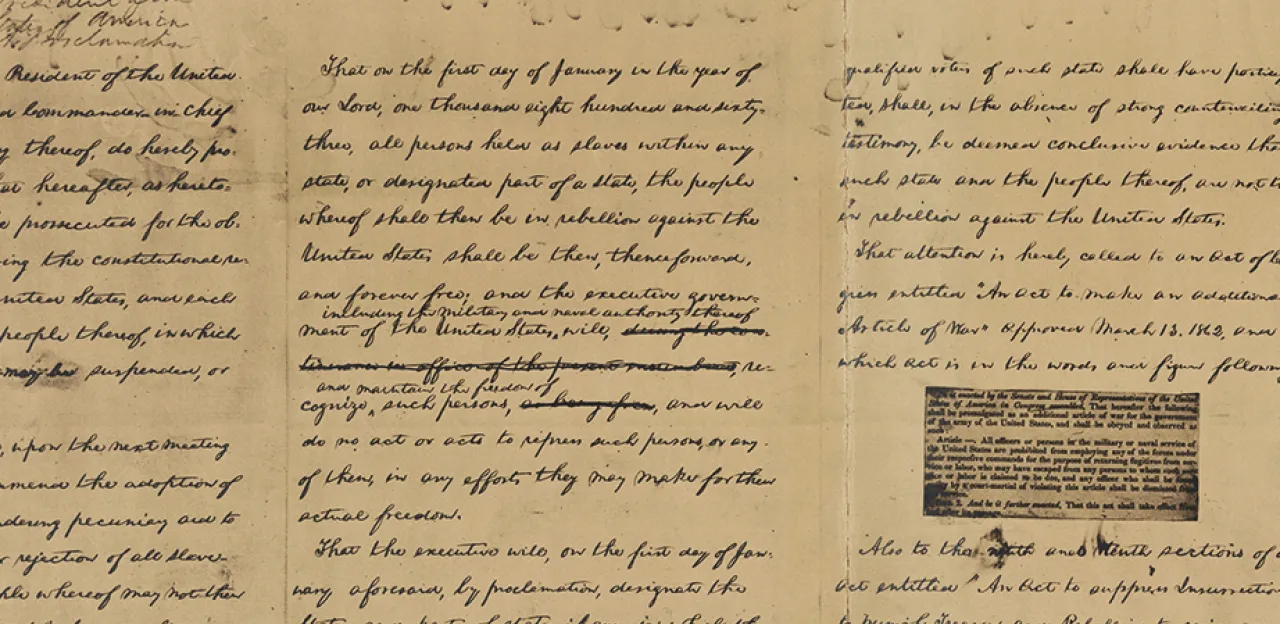 of America
President of the United
Commander-in-Chief
thereof, do hereby pro-
hereafter, as hereto-
prosecuted for the ob-
the constitutional re-
United States, and each
people thereof, in which
may be suspended, or
upon the next meeting
the adoption of
pecuniary aid to
rejection of all slave
whereof may not then
That on the first day of January in the year of
our Lord, one thousand eight hundred and sixty-
three, all persons held as slaves within any
state, or designated part of a state, the people
whereof shall then be in rebellion against the
United States shall be then, thenceforward,
and forever free; and the executive govern-
including the military and naval authority thereof
ment of the United States, will, during the con-
tinuance in office of the present incumbents, re-
and maintain the freedom of
cognize, such persons, as being free, and will
do no act or acts to repress such persons, or any
of them, in any efforts they may make for their
actual freedom.
That the executive will, on the first day of Jan-
uary aforesaid, by proclamation, designate the
qualified voters of such state shall have
ted, shall, in the absence of strong
testimony, be deemed conclusive evidence
such state and the people thereof, are not
in rebellion against the United States.
That attention is hereby called to an act of
gress entitled "An act to make an additional
Article of War" approved March 13, 1862, and
which act is in the words and figure following
enacted by the Senate and House of Representatives of the United
States of America in Congress assembled, That hereafter the following
shall be promulgated as an additional article of war for the government
of the army of the United States, and shall be obeyed and observed as
such:
Article —. All officers or persons in the military or naval service of
the United States are prohibited from employing any of the forces under
their respective commands for the purpose of returning fugitives from
service or labor, who may have escaped from any persons to whom such
or labor is claimed to be due, and any officer who shall be found
by a court-martial of violating this article shall be dismissed from
service.
2. And be it further enacted, That this act shall take effect from
Also to the ninth and tenth sections of
act entitled "An Act to suppress Insurrection